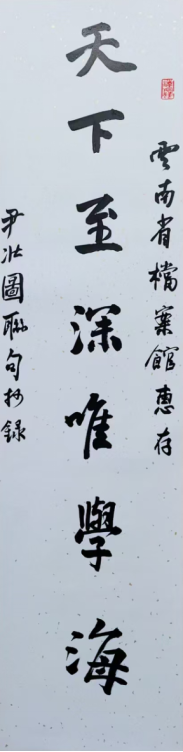 雲南省檔案館惠存
天下至深唯學海
尹壯圖聯句抄錄